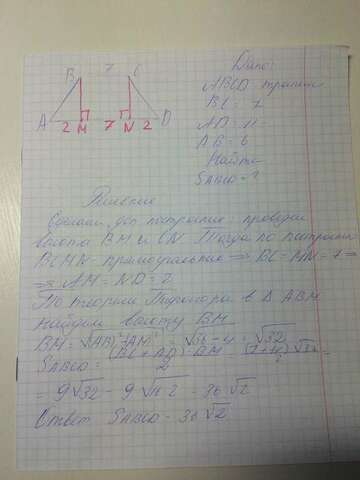 B 7 C
A 2 M 7 N 2 D
Дано:
ABCD трапец
BC = 7
AD = 11
AB = 6
Найти
SABCD - ?
Решение
Сделаем доп построение: проведем
высоты BM и CN Тогда по построению
BCMN прямоугольник ⇒ BC = MN = 7 ⇒
⇒ AM = ND = 2
По теореме Пифагора в Δ ABM
найдем высоту BM
BM = √AB² - AM² = √36 - 4 = √32
SABCD = (BC + AD) · BM / 2 = (7+11) √32 / 2 =
= 9√32 = 9√16·2 = 36√2
Ответ SABCD - 36√2